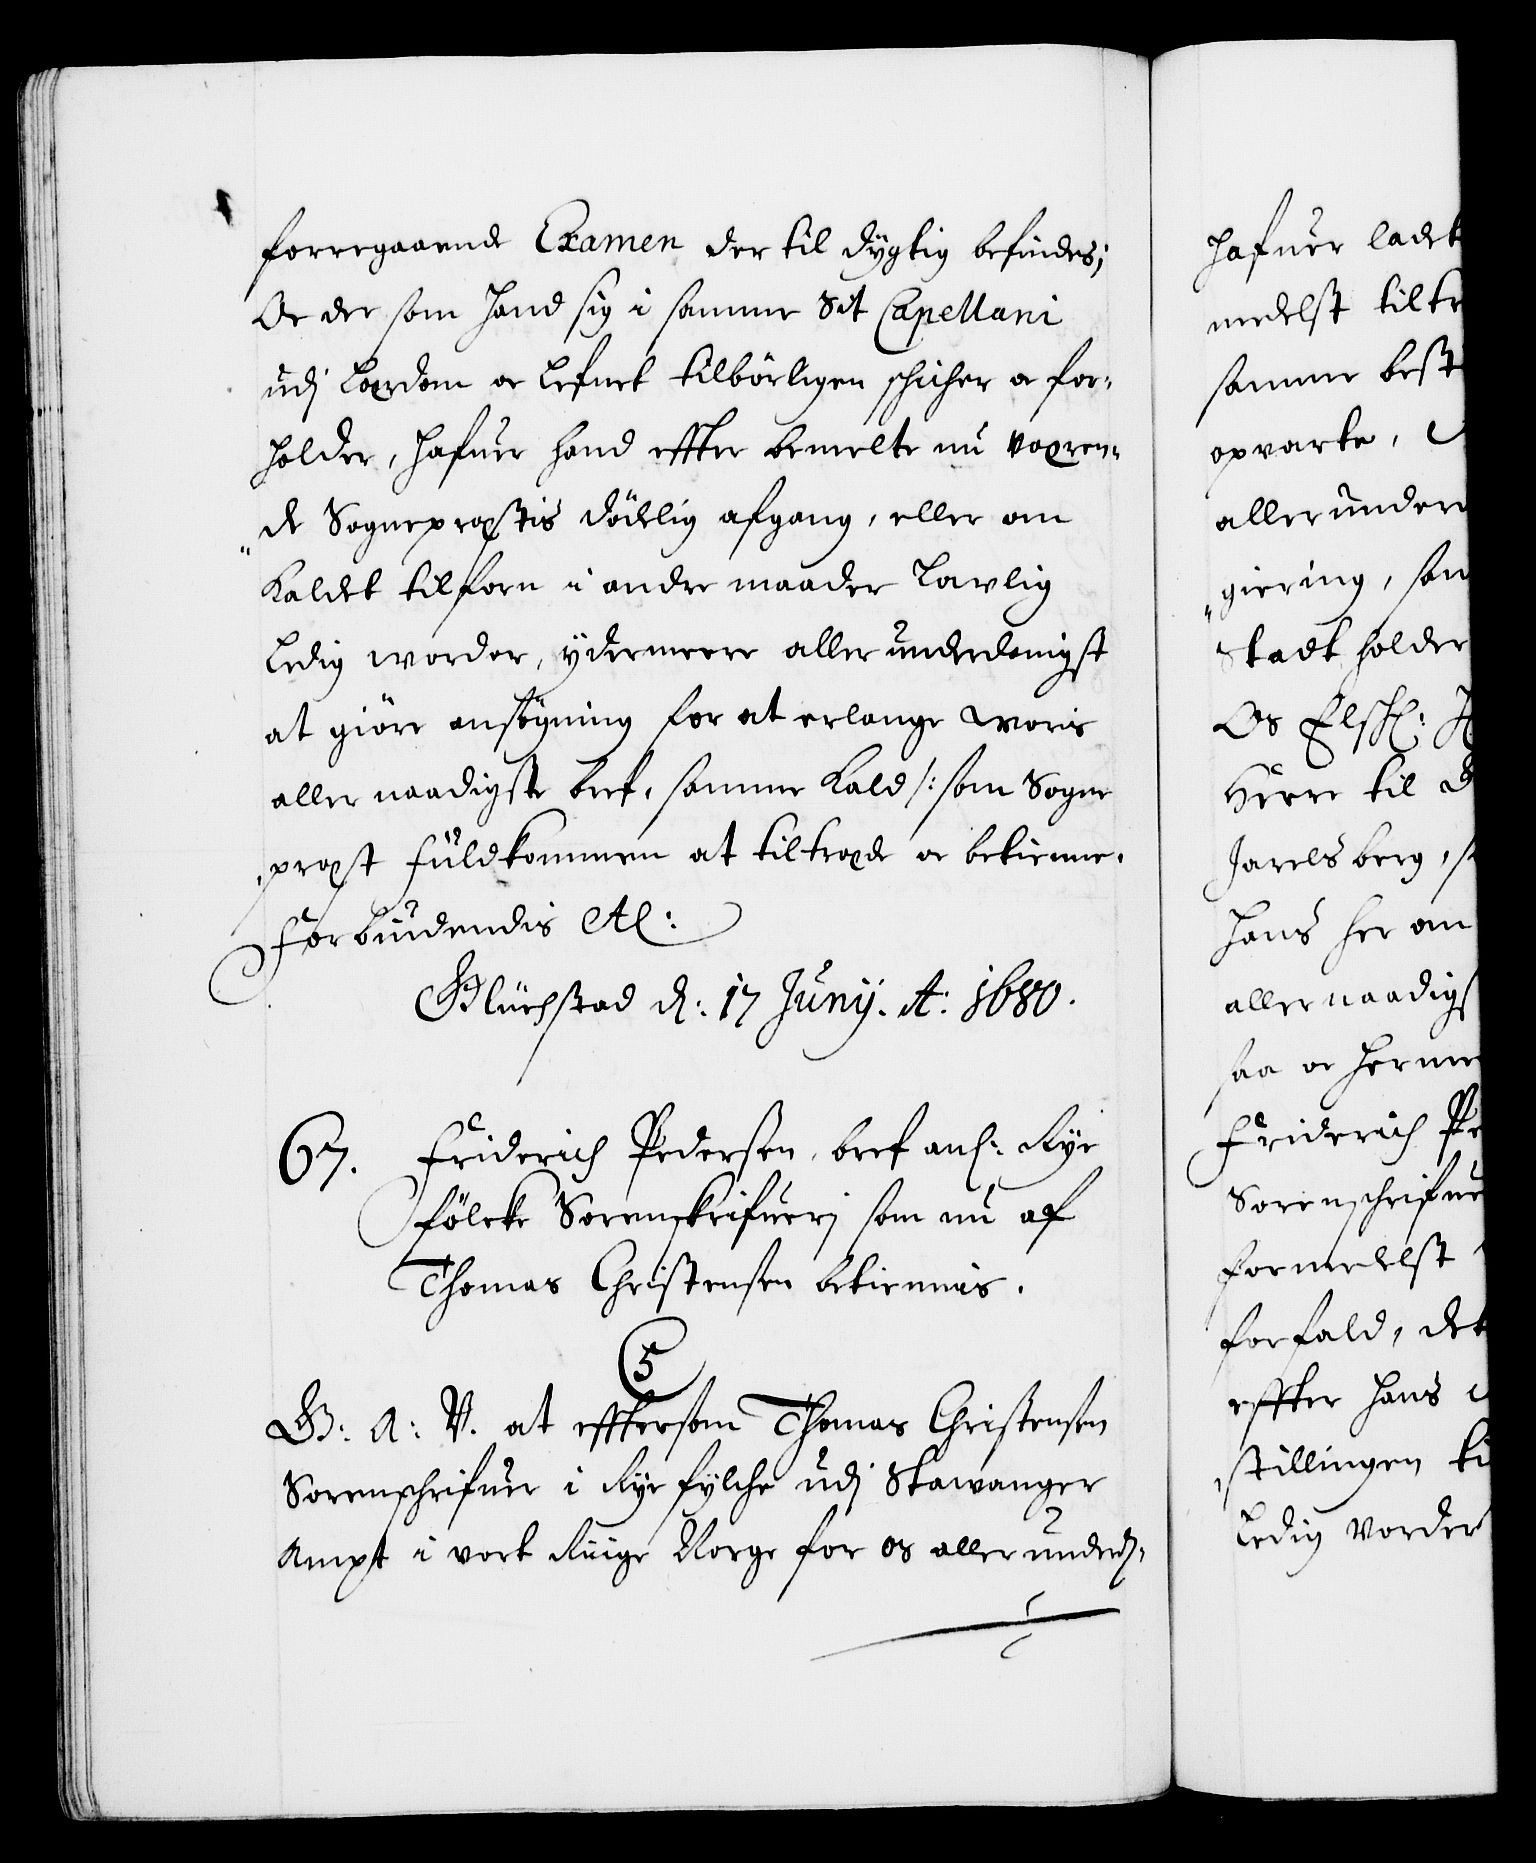 forregaaende Examen der til dygtig befindes;
Oc der som hand sig i samme Sit Capellani
udj Lærdom oc Lefnet tilbörligen schicher oc for-
holder, hafuer hand effter bemelte nu væren-
de Sognepræstis dödelig afgang, eller om
Kaldet tilforn i andre maader Lovlig
Ledig worder, ydermeere allerunderdanigst
at giöre ansögning for at erlange woris
allernaadigste bref, samme Kald /: som Sogne
præst fuldkommen at tiltræde oc betienne.
Forbiudendis Al:
Glückstad d: 17 Junij. A: 1680.
67. Friderich Pedersen, bref anl: Rye
fölcke Sorenskrifuerj som nu af
Thomas Christensen betiennis.
5
G: A: V. at efftersom Thomas Christensen
Sorenschrifuer i Ryefylche udj Stawanger
Ampt i vort Riige Norge for os allerunderd-
hafuer ladet
medelst tiltr
samme best
opvarte,
allerunder
giering, som
Stadtholder
Os Elsch:
Herre til
Jarelsberg, s
hans her om
allernaadigs
saa oc herme
Friderich Pe
Sorenschrifue
formedelst
forfald, det
effter hans
stillingen ti
Ledig vorder